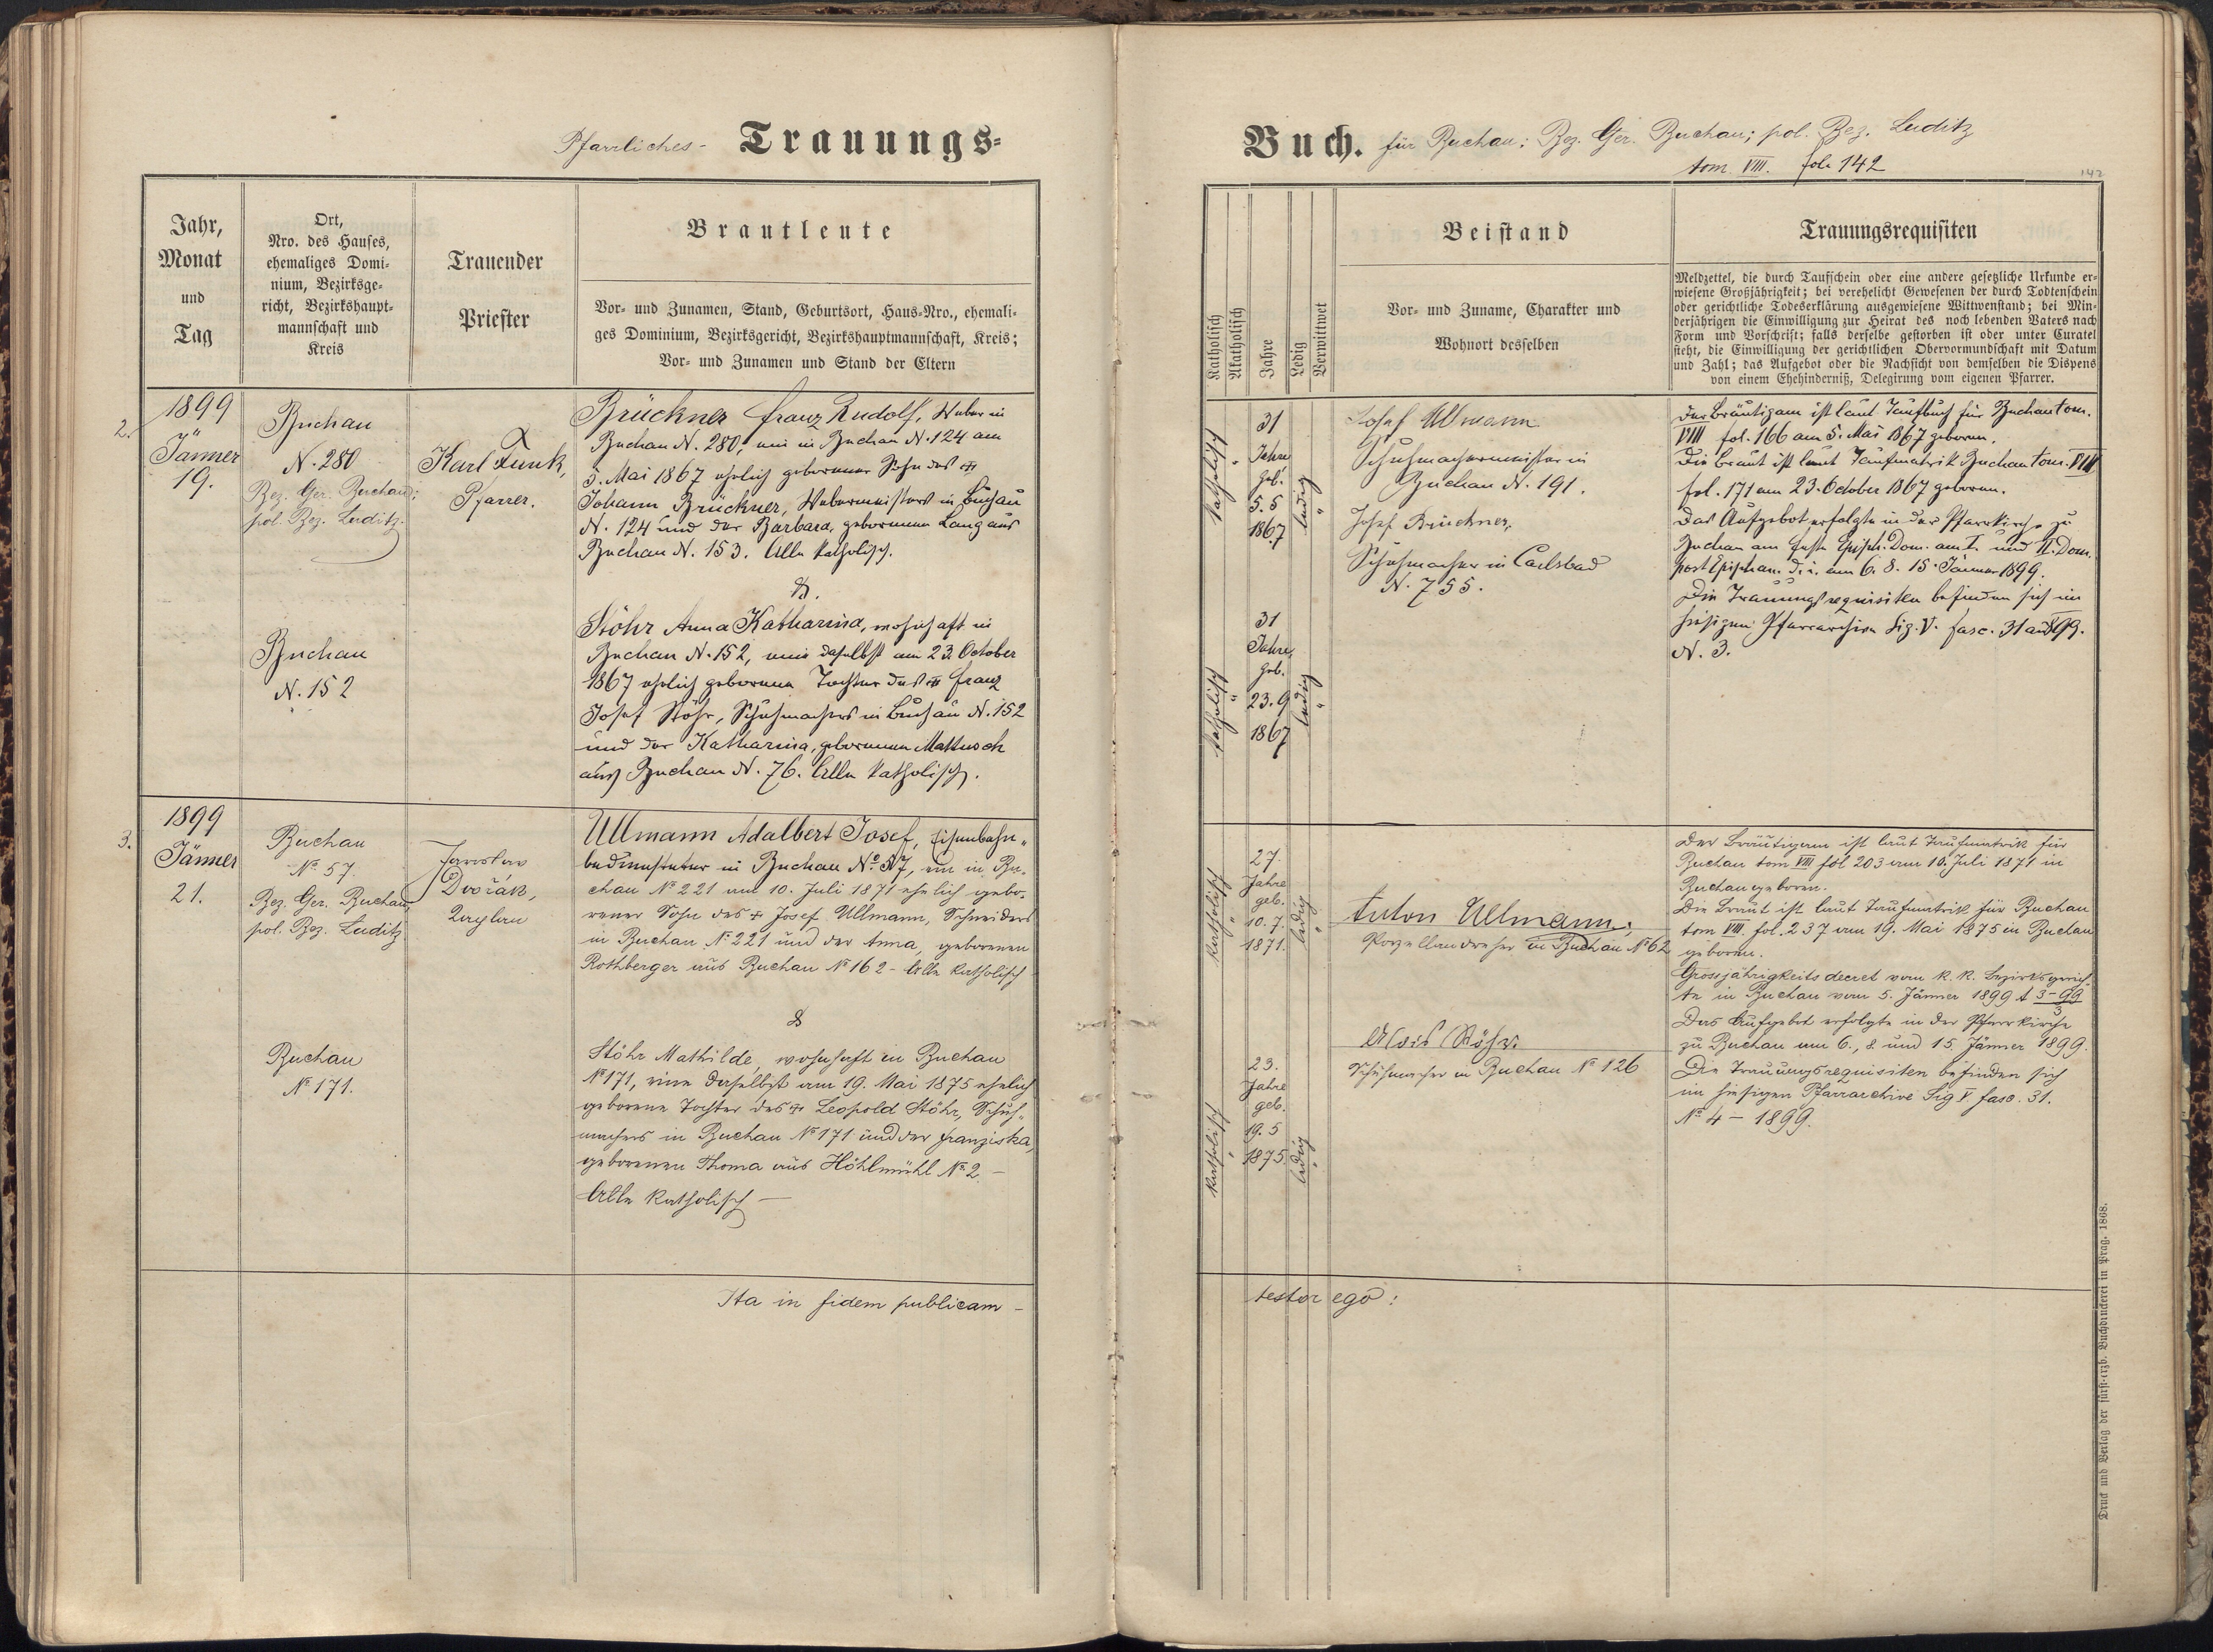 Pfarrliches- Trauungs-
Jahr,
Monat
und
Tag
Ort,
Nro. des Hauses,
ehemaliges Domi-
nium, Bezirksge-
richt, Bezirkshaupt-
mannschaft und
Kreis
Trauender
Priester
Brautleute
Vor- und Zunamen, Stand, Geburtsort, Haus-Nro., ehemali-
ges Dominium, Bezirksgericht, Bezirkshauptmannschaft, Kreis;
Vor- und Zunamen und Stand der Eltern
2.
1899
Jänner
19.
Buchau
N. 280
Bez. Ger. Buchau;
pol. Bez. Luditz.
Buchau
N. 152
Karl Funk,
Pfarrer.
Brückner Franz Rudolf, Weber in
Buchau N. 280, ein in Buchau N. 124 am
5. Mai 1867 ehelich geborener Sohn des
Johann Brückner, Webermeisters in Buchau
N. 124 und der Barbara, geborenen Lang aus
Buchau N. 153. Alle katholisch.
&.
Stöhr Anna Katharina, wohnhaft in
Buchau N. 152, eine daselbst am 23. October
1867 ehelich geborene Tochter des Franz
Josef Stöhr, Schuhmachers in Buchau N. 152
und der Katharina, geborenen Mattusch
aus Buchau N. 76. Alle katholisch.
3.
1899
Jänner
21.
Buchau
No 57.
Bez. Ger. Buchau,
pol. Bez. Luditz
Buchau
No 171.
Jaroslav
Dvořák,
Kaplan
Ullmann Adalbert Josef, Eisenbahn-
bediensteter in Buchau No. 57, ein in Bu-
chau No 221 am 10. Juli 1871 ehelich gebo-
rener Sohn des + Josef Ullmann, Schneiders
in Buchau No 221 und der Anna, geborenen
Rothberger aus Buchau No 162 - Alle katholisch
&
Stöhr Mathilde, wohnhaft in Buchau
No 171, eine daselbst am 19. Mai 1875 ehelich
geborene Tochter des + Leopold Stöhr, Schuh-
machers in Buchau No 171 und der Franziska,
geborenen Thoma aus Höhlmühl No 2. -
Alle katholisch -
Ita in fidem publicam -
Buch. für Buchau: Bez. Ger. Buchau; pol. Bez. Luditz
tom. VIII. fol. 142
142
Katholisch
Akatholisch
Jahre
Ledig
Verwittwet
Beistand
Vor- und Zuname, Charakter und
Wohnort desselben
Trauungsrequisiten
Meldzettel, die durch Taufschein oder eine andere gesetzliche Urkunde er-
wiesene Großjährigkeit; bei verehelicht Gewesenen der durch Todtenschein
oder gerichtliche Todeserklärung ausgewiesene Wittwenstand; bei Min-
derjährigen die Einwilligung zur Heirat des noch lebenden Vaters nach
Form und Vorschrift; falls derselbe gestorben ist oder unter Curatel
steht, die Einwilligung der gerichtlichen Obervormundschaft mit Datum
und Zahl; das Aufgebot oder die Nachsicht von demselben die Dispens
von einem Ehehinderniß, Delegirung vom eigenen Pfarrer.
katholisch
31
Jahre
geb.
5. 5
1867
ledig
katholisch
31
Jahre,
geb.
23. 9
1867
ledig
Josef Ullmann
Schuhmachermeister in
Buchau N. 191.
Josef Brückner,
Schuhmacher in Carlsbad
N. 755.
Der Bräutigam ist laut Taufbuch für Buchau tom.
VIII fol. 166 am 5. Mai 1867 geboren.
Die Braut ist laut Taufmatrik Buchau tom. VIII
fol. 171 am 23. October 1867 geboren.
Das Aufgebot erfolgte in der Pfarrkirche zu
Buchau am Feste Epiph. Dom. am I. und II. Dom.
post Epiphan. d. i. am 6. 8. 15. Jänner 1899.
Die Trauungsrequisiten befinden sich im
hiesigen Pfarrarchive Sig. V. fasc. 31
N. 3.
katholisch
27.
Jahre
geb.
10. 7.
1871.
ledig
katholisch
23.
Jahre
geb.
19. 5
1875
ledig
Anton Ullmann,
Porzellandreher in Buchau No 62
Alois Stöhr.
Schuhmacher in Buchau No 126
Der Bräutigam ist laut Taufmatrik für
Buchau tom VIII fol 203 am 10. Juli 1871 in
Buchau geboren.
Die Braut ist laut Taufmatrik für Buchau
tom VIII. fol. 237 am 19. Mai 1875 in Buchau
geboren.
Grossjährigkeitsdecret vom k. k. Bezirksgerich-
te in Buchau vom 5. Jänner 1899 A 3-99
3
Das Aufgebot erfolgte in der Pfarrkirche
zu Buchau am 6., 8. und 15. Jänner 1899.
Die Trauungsrequisiten befinden sich
im hiesigen Pfarrarchive Sig V fasc. 31.
No 4 - 1899.
testor ego:
Druck und Verlag der fürst-erzb. Buchdruckerei in Prag. 1868.